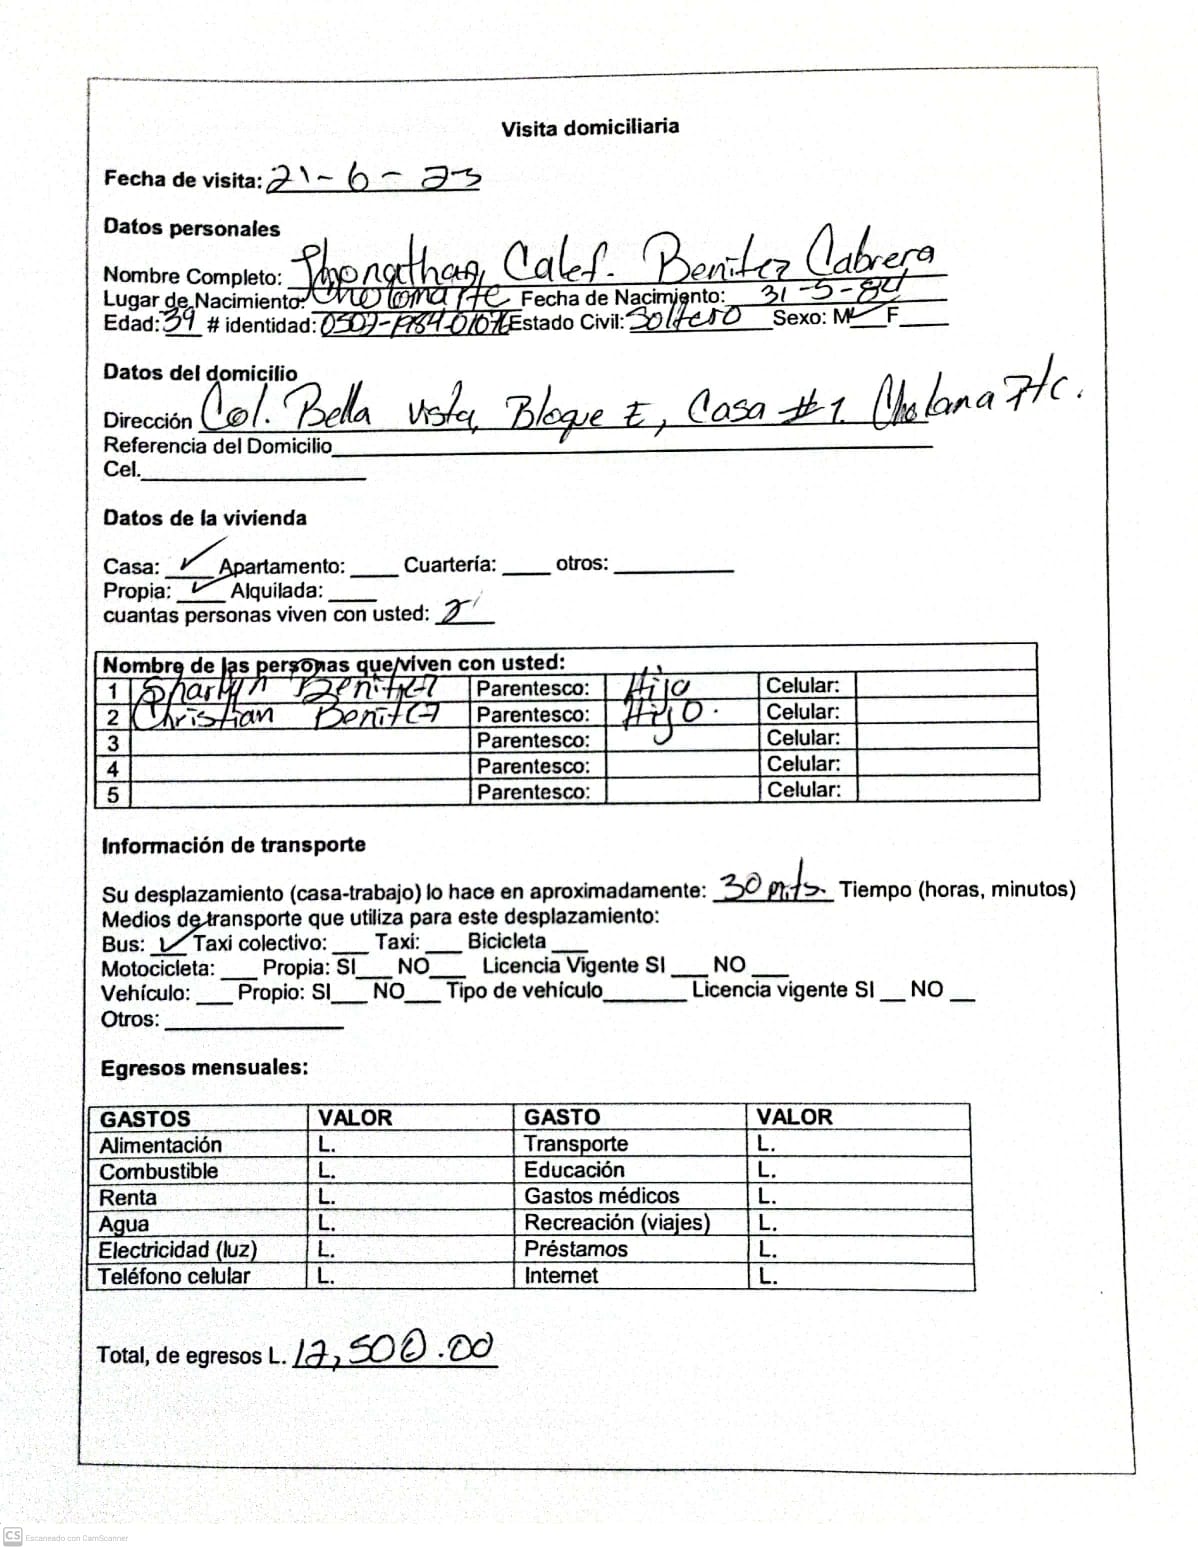 Visita domiciliaria
Fecha de visita: 21-6-23
Datos personales
Nombre Completo: Jhonathan Calef. Benitez Cabrera
Lugar de Nacimiento: Choloma Fecha de Nacimiento: 31-5-84
Edad: 39 # identidad: Estado Civil: Soltero Sexo: M ✓ F
Datos del domicilio
Dirección Col. Bella vista, Bloque E, Casa #1. Choloma
Referencia del Domicilio
Cel.
Datos de la vivienda
Casa: ✓ Apartamento: Cuartería: otros:
Propia: ✓ Alquilada:
cuantas personas viven con usted: 2
Nombre de las personas que viven con usted:
1 Sharlyn Benitez Parentesco: Hijo Celular:
2 Christian Benitez Parentesco: Hijo. Celular:
3 Parentesco: Celular:
4 Parentesco: Celular:
5 Parentesco: Celular:
Información de transporte
Su desplazamiento (casa-trabajo) lo hace en aproximadamente: 30 mits. Tiempo (horas, minutos)
Medios de transporte que utiliza para este desplazamiento:
Bus: ✓ Taxi colectivo: Taxi: Bicicleta
Motocicleta: Propia: SI NO Licencia Vigente SI NO
Vehículo: Propio: SI NO Tipo de vehículo Licencia vigente SI NO
Otros:
Egresos mensuales:
GASTOS VALOR GASTO VALOR
Alimentación L. Transporte L.
Combustible L. Educación L.
Renta L. Gastos médicos L.
Agua L. Recreación (viajes) L.
Electricidad (luz) L. Préstamos L.
Teléfono celular L. Internet L.
Total, de egresos L. 12,500.00
CS Escaneado con CamScanner